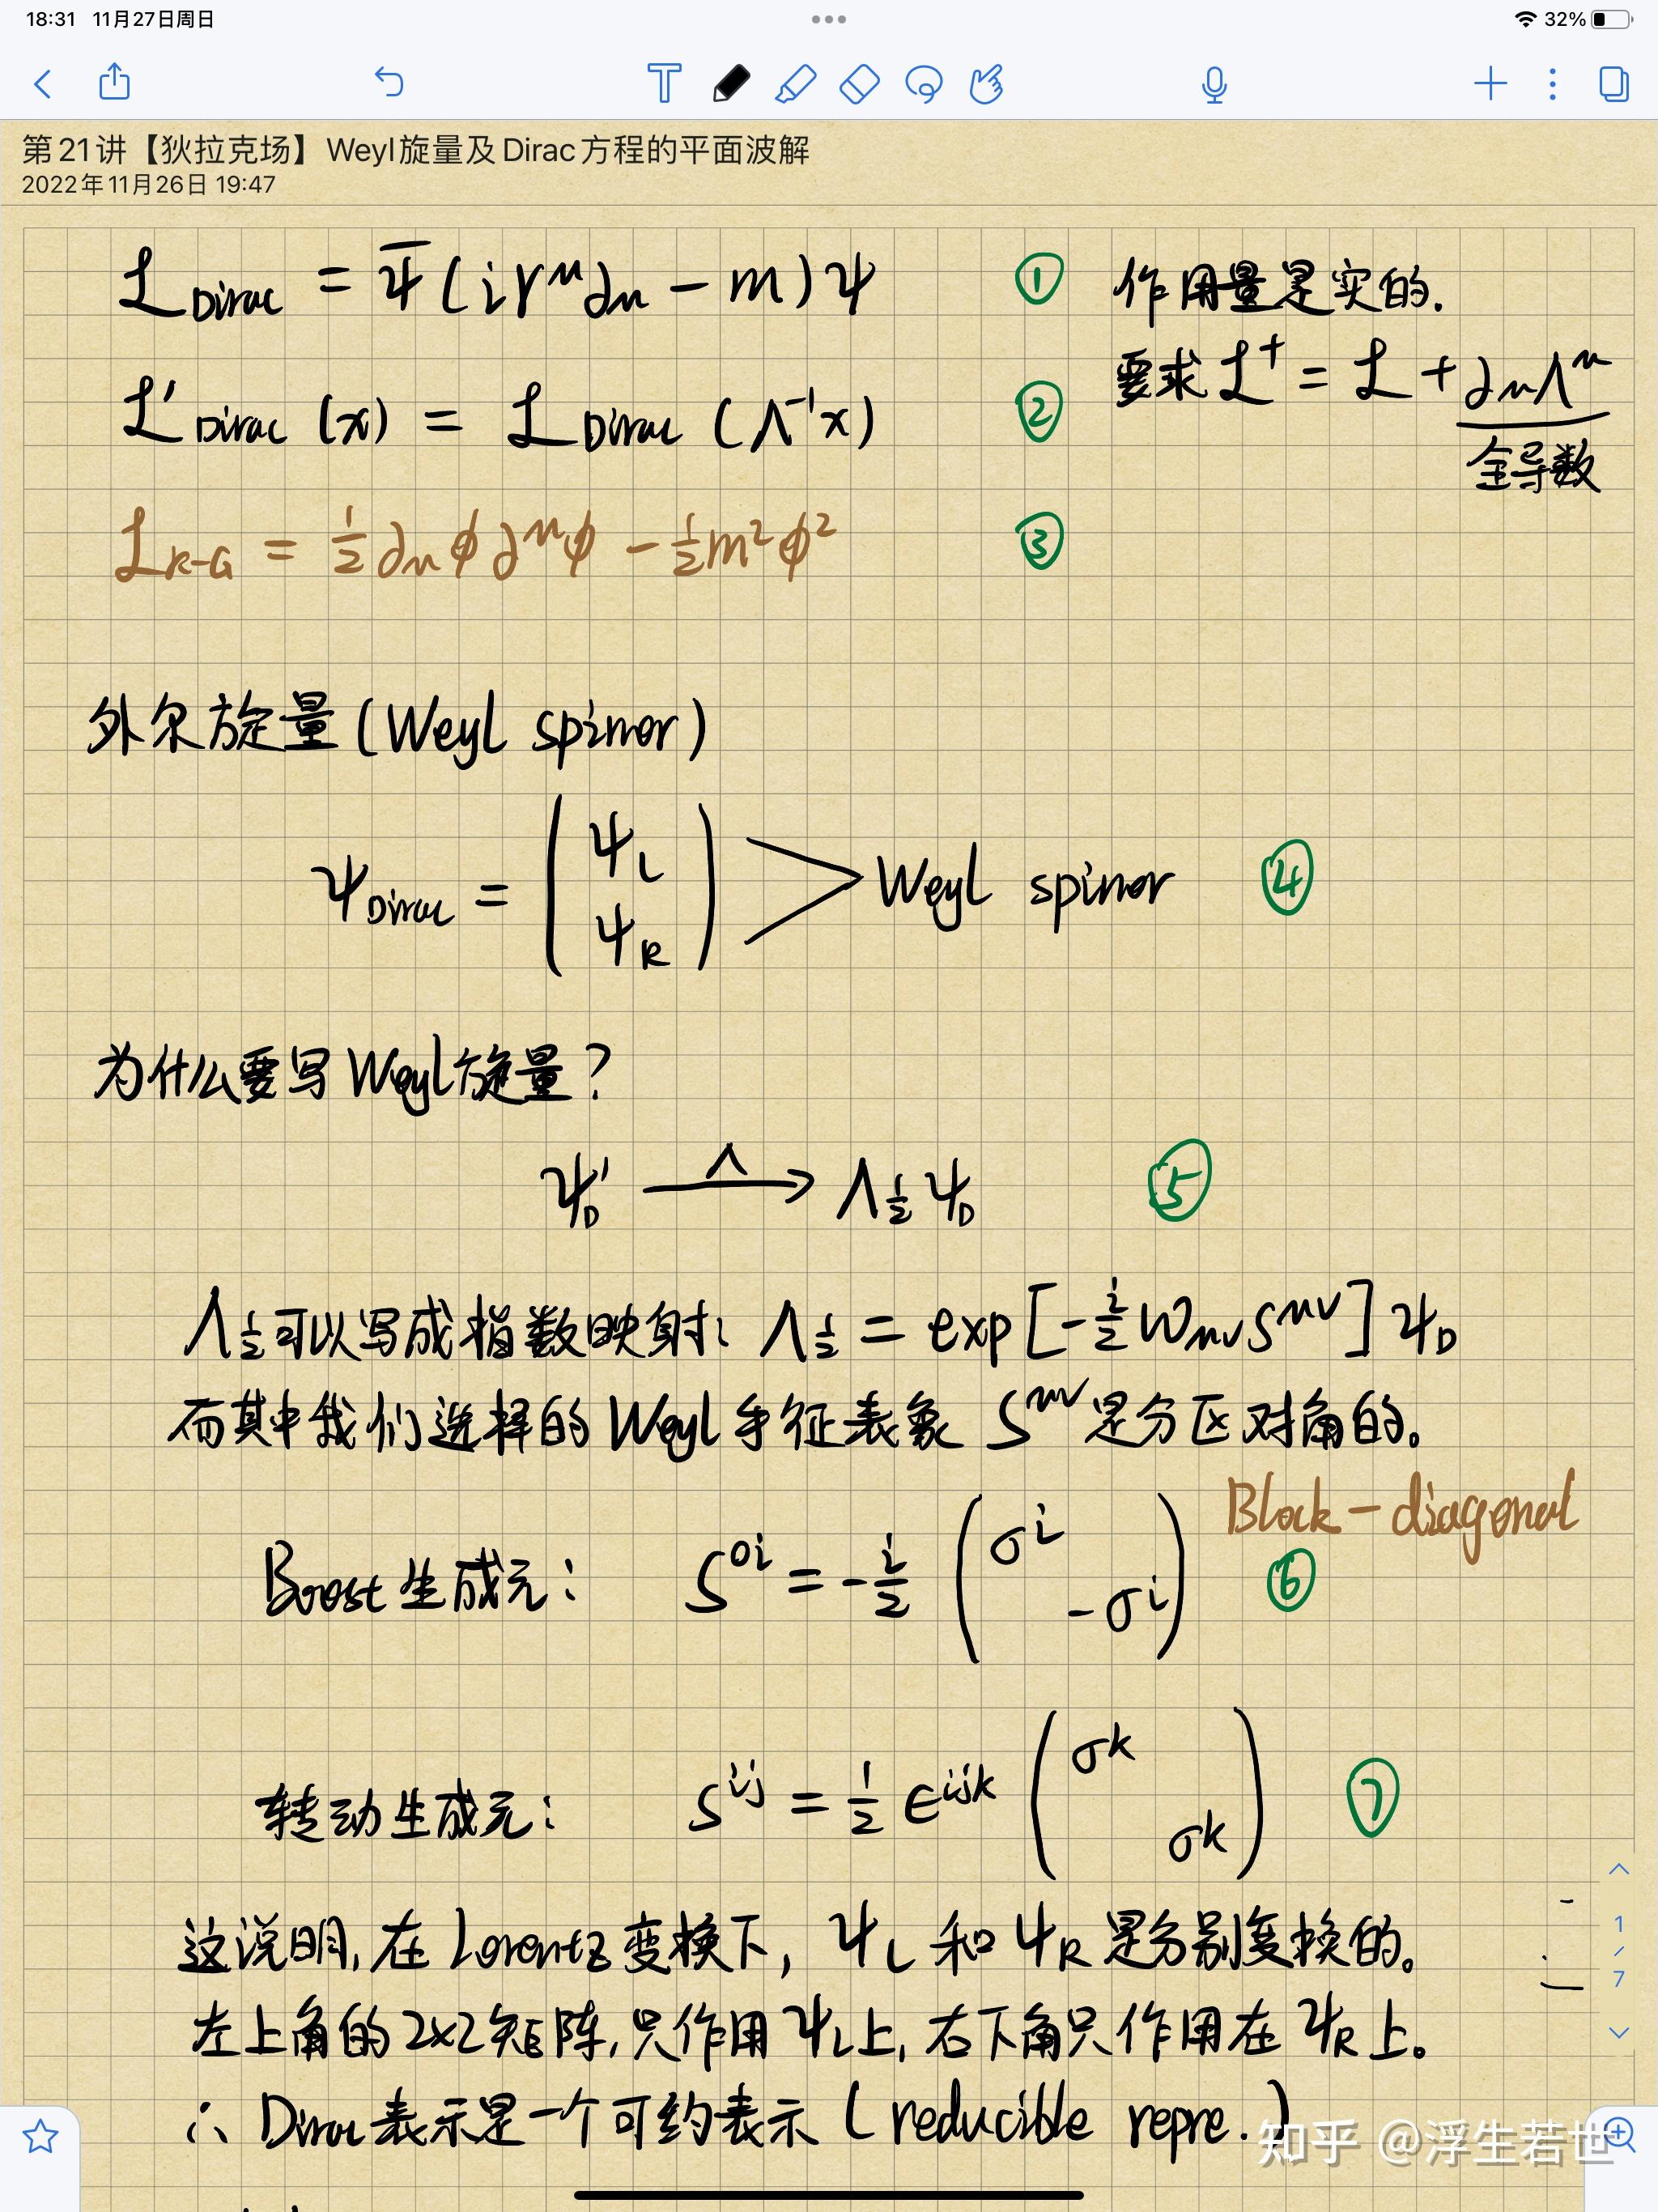 18:31 11月27日周日
32%
第21讲【狄拉克场】Weyl旋量及Dirac方程的平面波解
2022年11月26日 19:47
ℒ_Dirac = ψ̄(iγ^μ∂_μ − m)ψ ①
作用量是实的.
要求 ℒ† = ℒ + ∂_μΛ^μ
全导数
ℒ'_Dirac (x) = ℒ_Dirac (Λ⁻¹x) ②
ℒ_K-G = 1/2 ∂_μ ϕ ∂^μ ϕ − 1/2 m² ϕ² ③
外尔旋量(Weyl spinor)
ψ_Dirac = ( ψ_L ψ_R ) > Weyl spinor ④
为什么要写Weyl旋量?
ψ'_D —Λ→ Λ_1/2 ψ_D ⑤
Λ_1/2可以写成指数映射: Λ_1/2 = exp[−i/2 ω_μν S^μν] ψ_D
而其中我们选择的Weyl手征表象 S^μν是分区对角的。
Block-diagonal
Boost生成元: S^0i = −i/2 ( σ^i −σ^i ) ⑥
转动生成元: S^ij = 1/2 ϵ^ijk ( σ^k σ^k ) ⑦
这说明,在Lorentz变换下, ψ_L和ψ_R是分别变换的。
左上角的2x2矩阵,只作用ψ_L上,右下角只作用在ψ_R上。
∴ Dirac表示是一个可约表示(reducible repre.)
1/7
知乎 @浮生若世